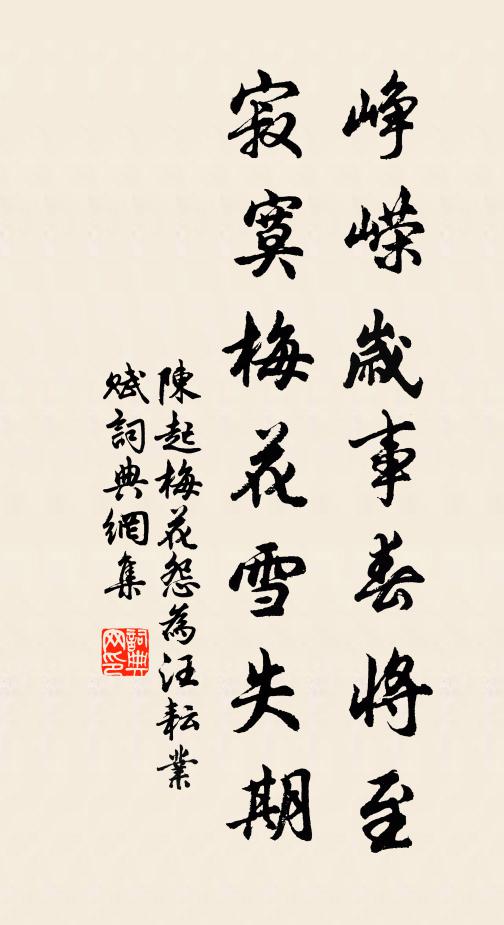 峥嶸歲事春將至
寂寞梅花雪失期
陳起梅花怨為汪耘業
賦詞典網集
詞典网印